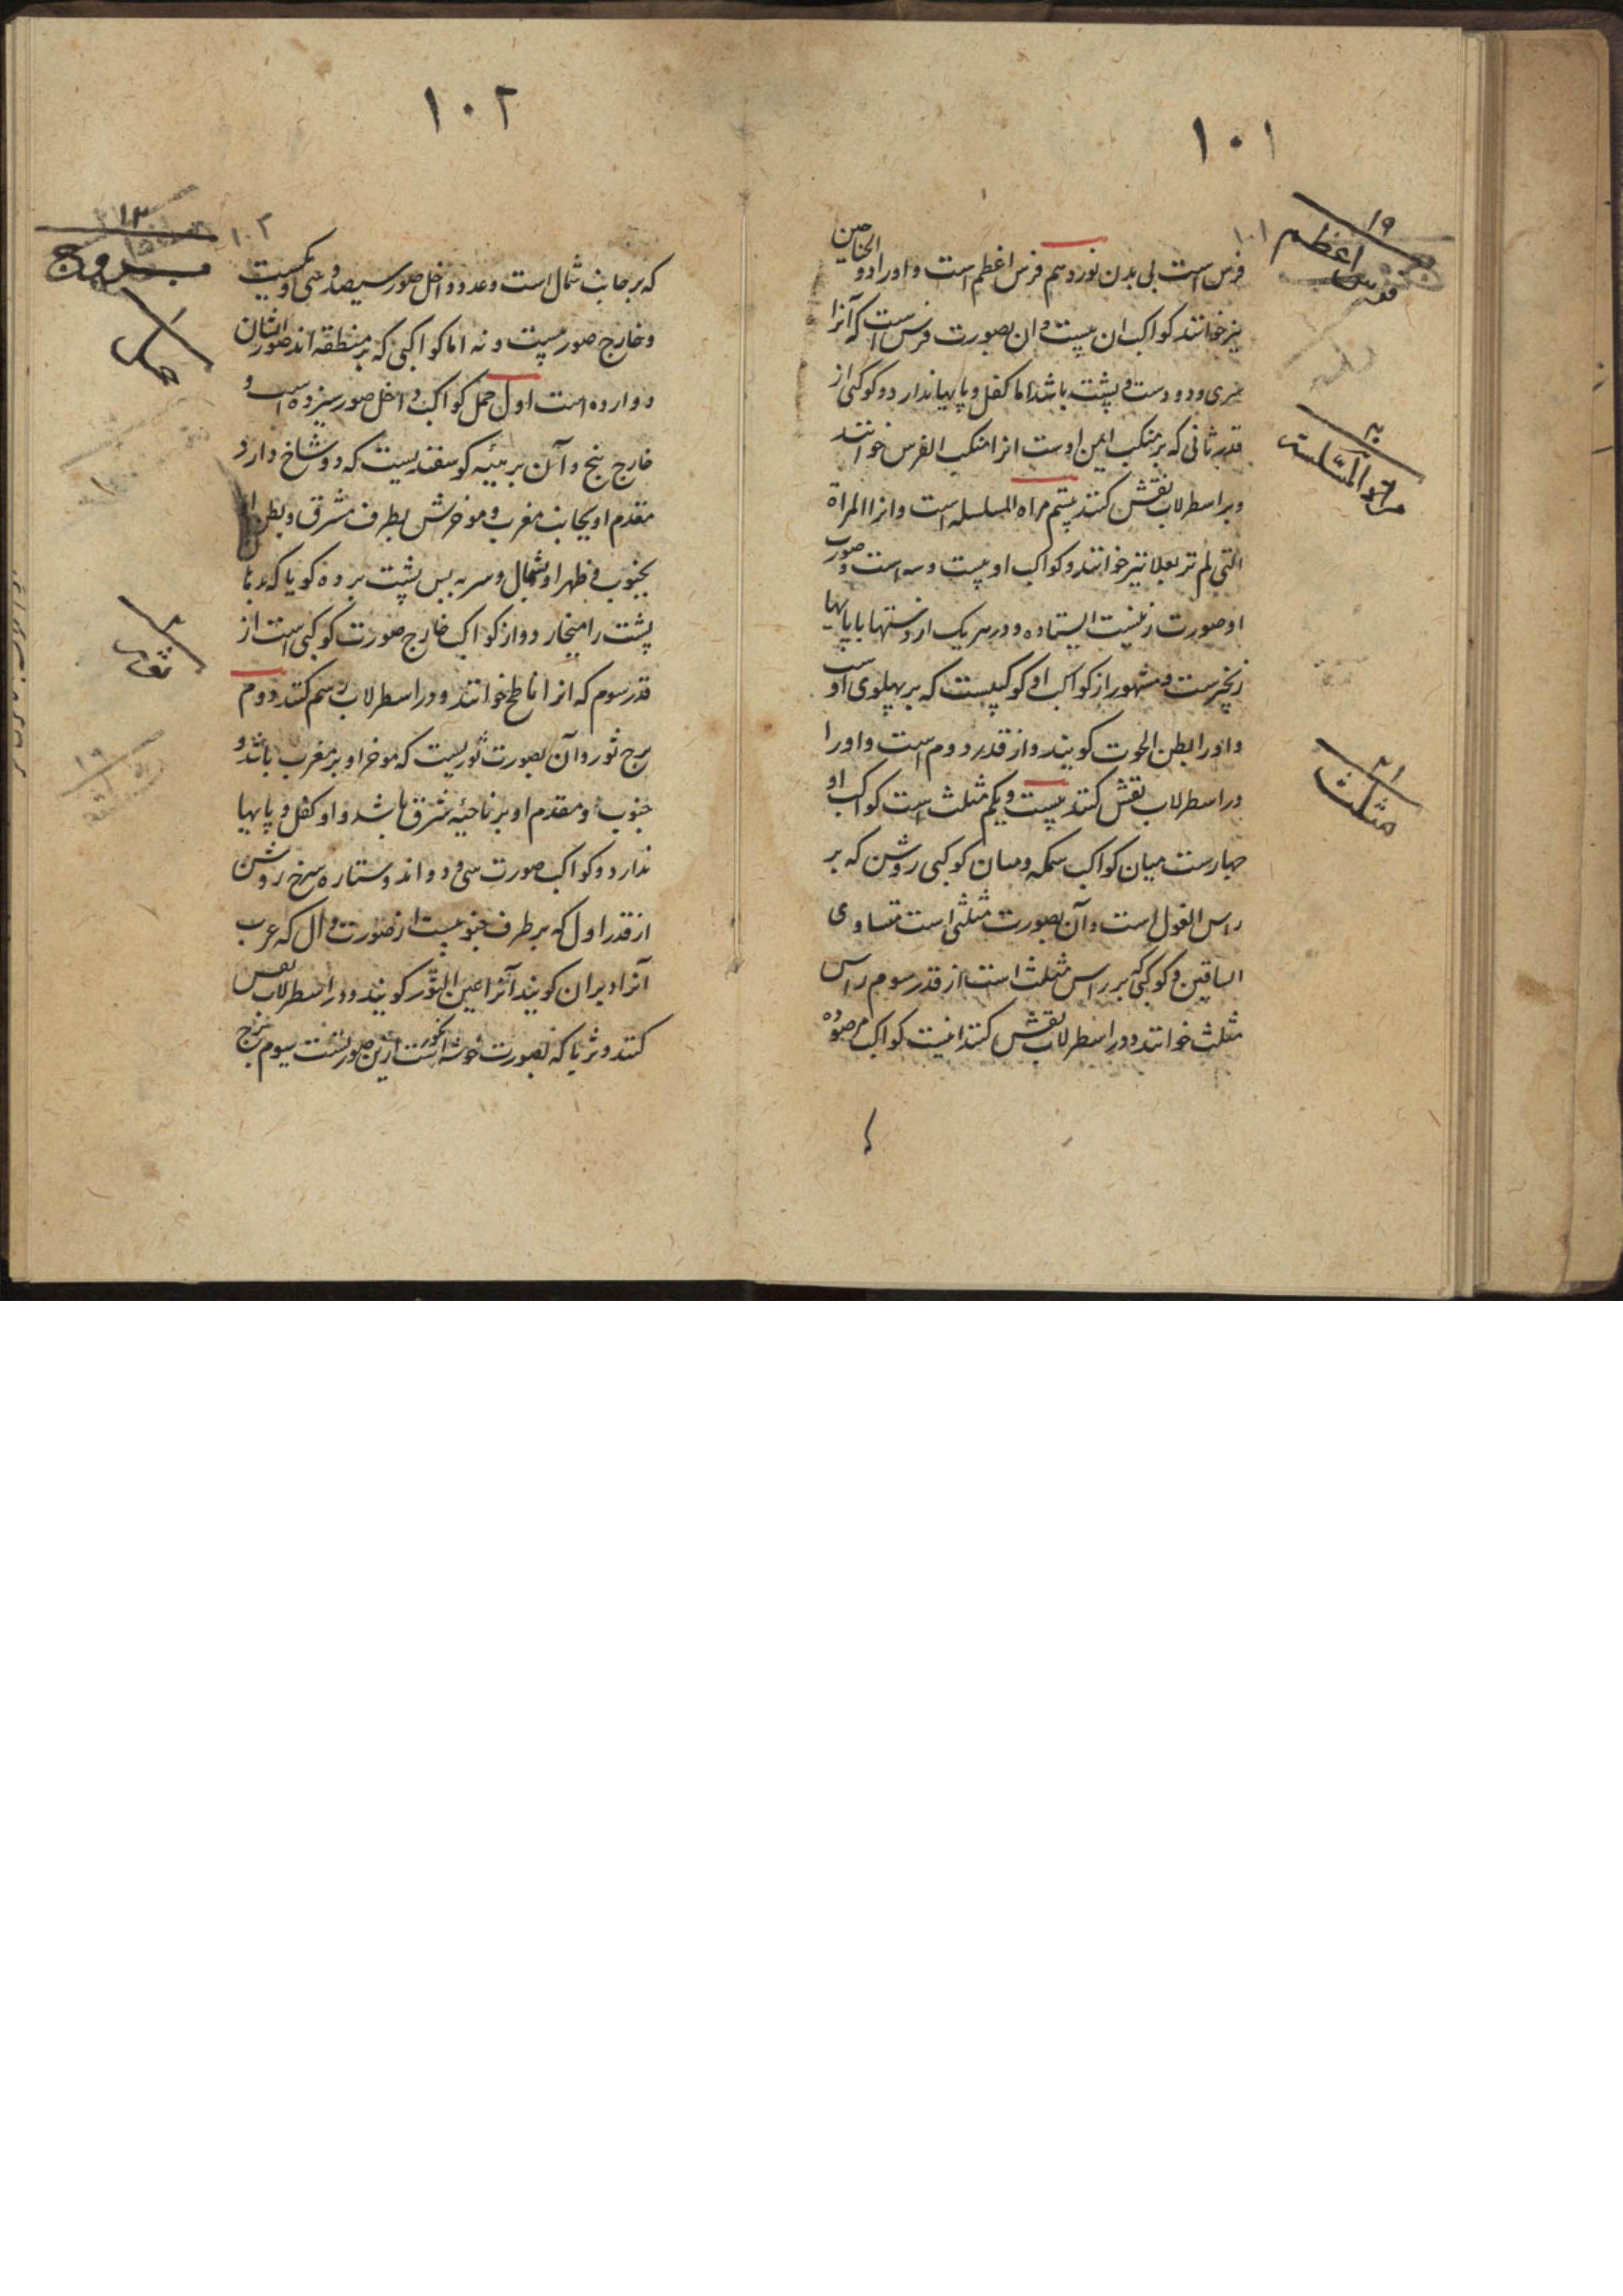 ۱۰۱
فرس است بی بدن نوزدهم فرس اعظم است و او را ذو الجناحین
نیز خوانند کواکب ان بیست و ان بصورت فرس است که آنرا
سری و دو دست و پشت باشد اما کفل و پایها ندارد و کوکبی از
قدر ثانی که بر منکب ایمن اوست انرا منکب الفرس خوانند
و بر اسطرلاب نقش کنند بیستم مراه المسلسله است و انرا المراة
التی لم تر بعلا نیز خوانند و کواکب او بیست و سه است و صورت
او صورت زنیست ایستاده و در هر یک از دستها با پایها
زنجیرست و مشهور از کواکب او کوکبیست که بر پهلوی او است
و او را بطن الحوت کویند و از قدر دوم است و او را
در اسطرلاب نقش کنند بیست و یکم مثلث است کواکب او
چهارست میان کواکب سمکه و میان کوکبی روشن که بر
راس الغول است و آن بصورت مثلثی است متساوی
الساقین و کوکبی که بر راس مثلث است از قدر سوم راس
مثلث خوانند و در اسطرلاب نقش کنند اینست کواکب مرصوده
۱۹
فرس اعظم
۲۰
مراة المسلسلة
۲۱
مثلث
۱۰۲
که بر جانب شمال است و عدد داخل صور سیصد و سی و یکست
و خارج صور بیست و نه اما کواکبی که بر منطقه اند صور ایشان
دوازده است اول حمل کواکب داخل صور سیزده است و
خارج پنج و آن بر هیئه کوسفندیست که دو شاخ دارد
مقدم او بجانب مغرب و موخرش بطرف مشرق و بطن او
بجنوب و ظهر او بشمال و سر به پس پشت برده کویا که
پشت را میخارد و از کواکب خارج صورت کوکبی است از
قدر سوم که انرا ناطح خوانند و در اسطرلاب رسم کنند دوم
برج ثور و آن بصورت ثوریست که موخر او بر مغرب باشد و
جنوب و مقدم او بر ناحیه مشرق باشد و او کفل و پایها
ندارد و کواکب صورت سی و دو اند و ستاره سرخ روشن
از قدر اول که بر طرف جنوبیست از صورت دال که عرب
آنرا دبران کویند آنرا عین الثور کویند و در اسطرلاب نقش
کنند و ثریا که بصورت خوشه انکورست ازین صورتست سیوم برج
۱۲
بروج
۱
حمل
۲
ثور